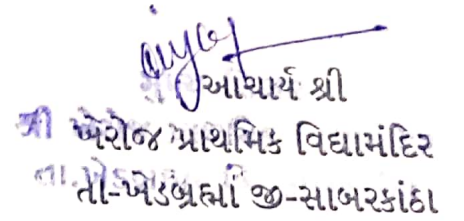 આચાર્ય શ્રી
શ્રી ખેરોજ પ્રાથમિક વિદ્યામંદિર
તા-ખેડબ્રહ્માં જી-સાબરકાંઠા